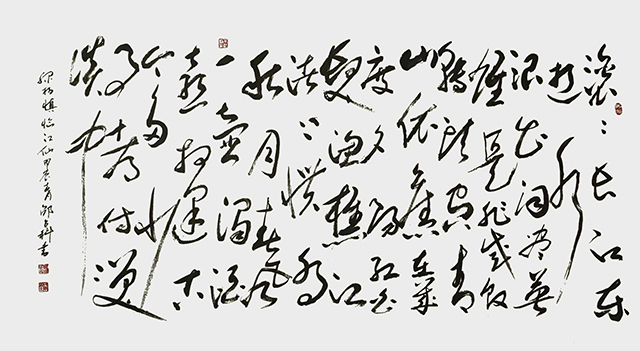 滚滚长江东
逝水
浪花淘尽英
雄是非成败
转头空青
山依旧在几
度夕阳红白
发渔樵江
渚上惯看
秋月春风
一壶浊酒
喜相逢古
今多少
事都付笑
谈中
杨慎临江仙甲辰 月邵 书